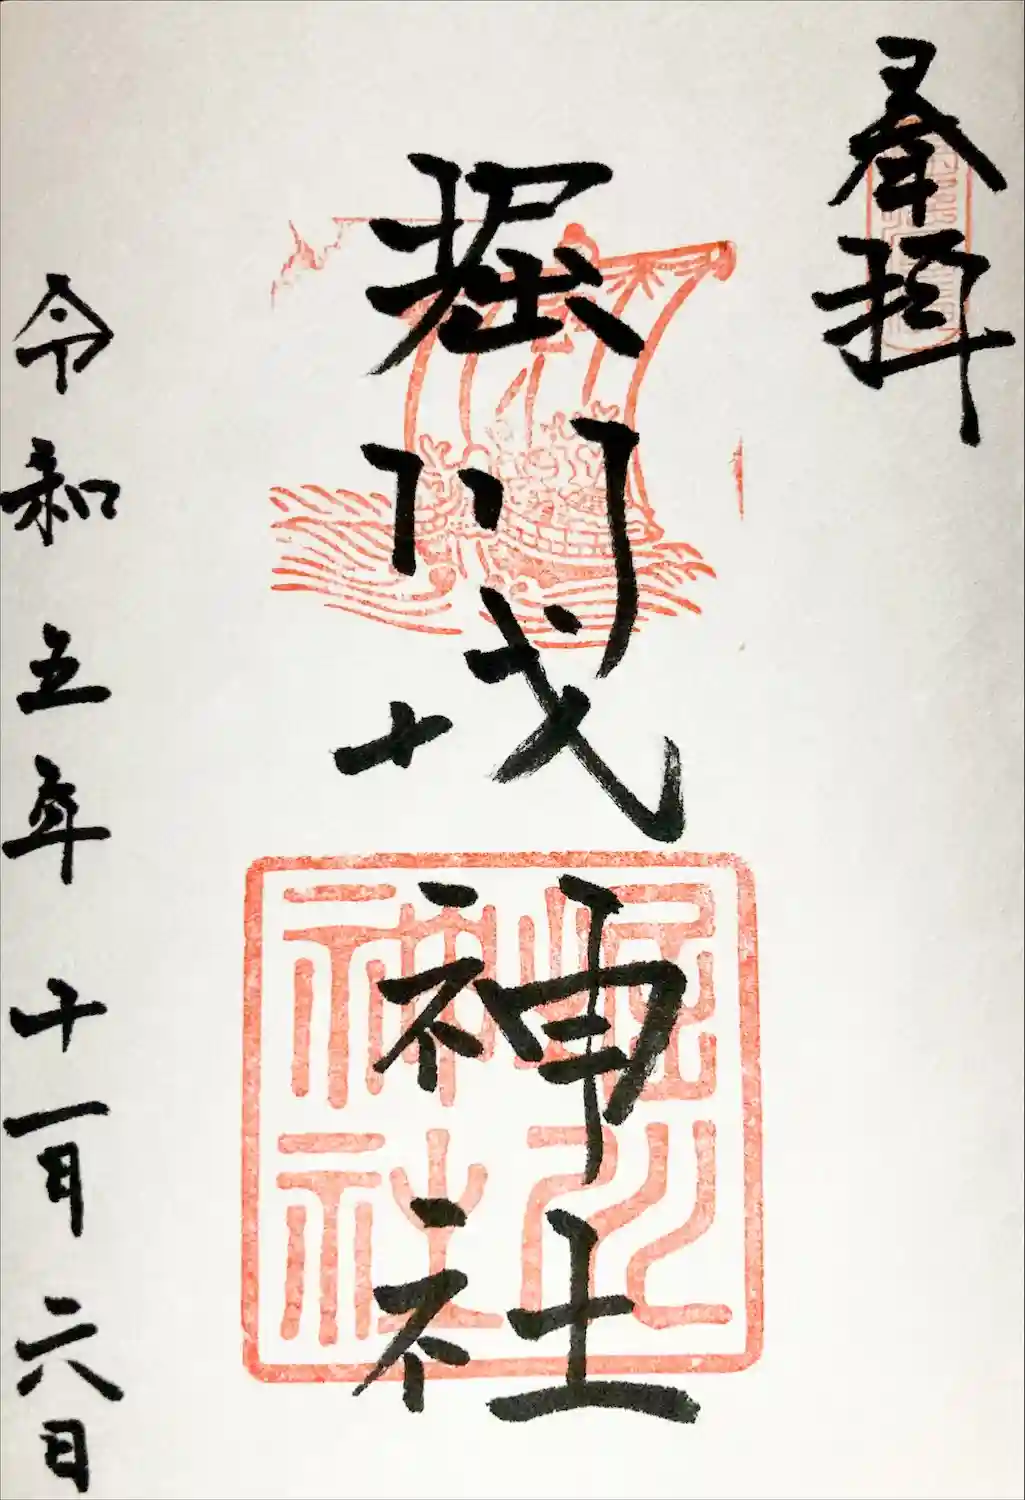 奉拝
堀川戎神社
令和五年十一月六日
堀川
神社